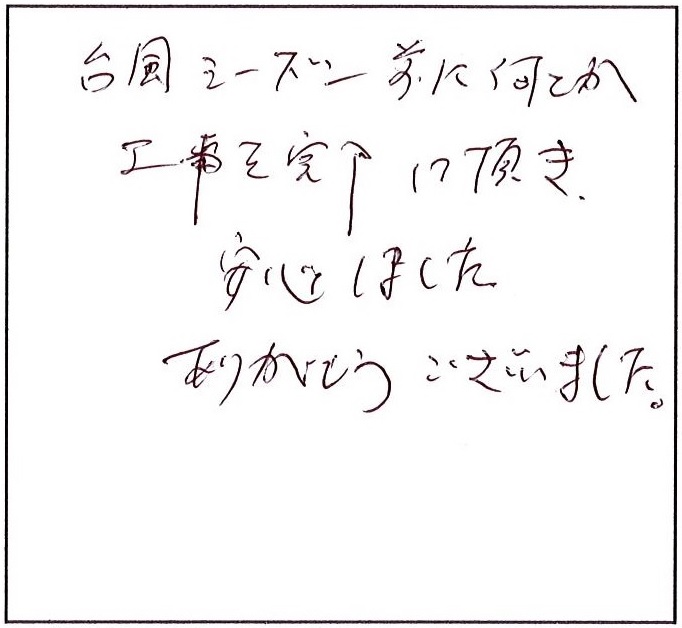 台風シーズン前に何とか
工事を完了に頂き、
安心しました
ありがとうございました。